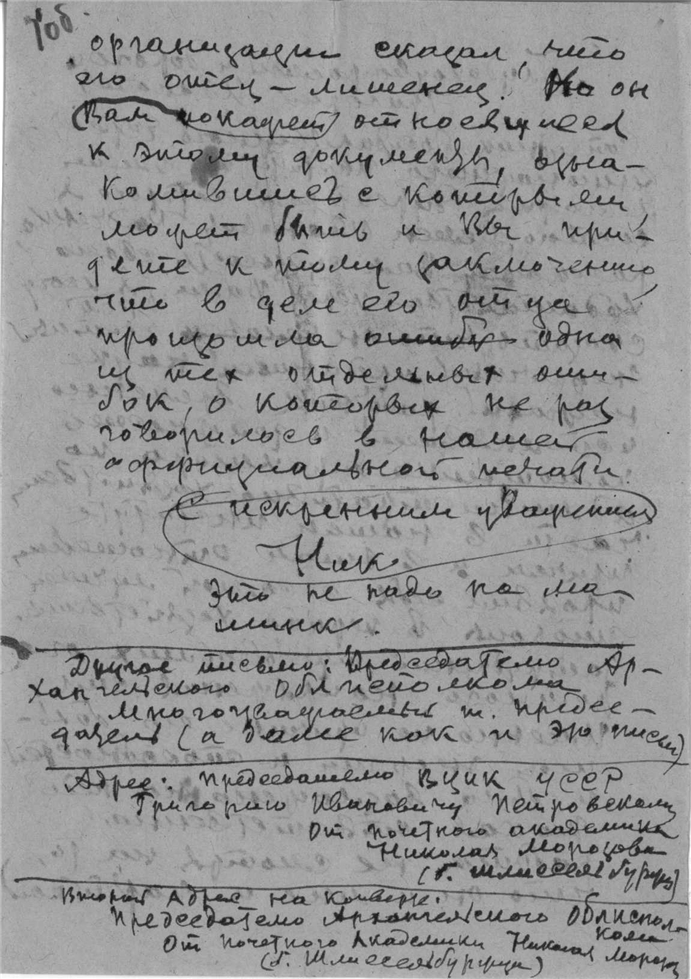 70об.
организации сказал, что
его отец – лишенец. Но он
Вам покажет относящиеся
к этому документы, озна-
комившись с которыми,
может быть и Вы при-
дете к тому заключению,
что в деле его отца
произошла ошибк одна
из тех отдельных оши-
бок, о которых не раз
говорилось в нашей
оффициальной печати.
С искренним уважением
Ник
Это не надо на ма-
шинк.
Другое письмо: Председателю Ар-
хангельского Облисполкома
Многоуважаемый т. предсе-
датель (а далее как и это письмо)
Адрес: Председателю ВЦИК УССР
Григорию Ивановичу Петровскому
От почетного академика
Николая Морозова
(г. Шлиссельбурга)
Второй Адрес на конверте:
Председателю Архангельского Облиспол-
кома
От почетного Академика Николая Морозова
(г. Шлиссельбурга)